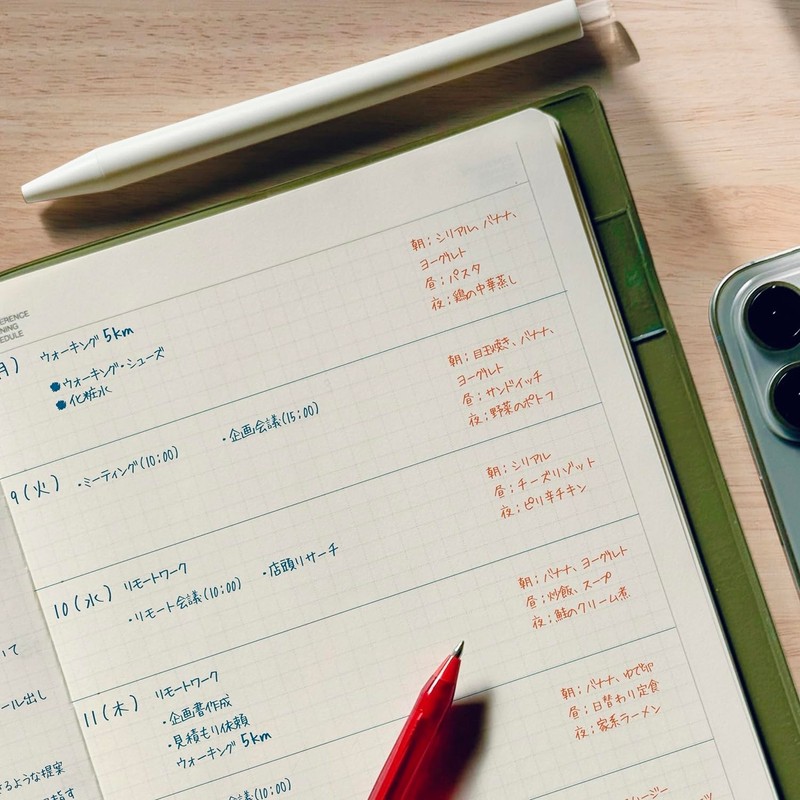 朝;シリアル、バナナ、
ヨーグルト
昼;パスタ
夜;鶏の中華蒸し
ERENCE
NING
EDULE
月)
ウォーキング 5km
ウォーキング・シューズ
化粧水
朝;目玉焼き、バナナ、
ヨーグルト
昼;サンドイッチ
夜;野菜のポトフ
9(火)
・ミーティング(10:00)
・企画会議(15:00)
朝;シリアル
昼;チーズリゾット
夜;ピリ辛チキン
10(水)
リモートワーク
・リモート会議(10:00)
・店頭リサーチ
朝;バナナ、ヨーグルト
昼;炒飯、スープ
夜;鮭のクリーム煮
11(木)
リモートワーク
・企画書作成
・見積もり依頼
ウォーキング 5km
朝;バナナ、ゆで卵
昼;日替わり定食
夜;家系ラーメン
いて
ール出し
きるような提案
指す
会議(10:00)
ージー